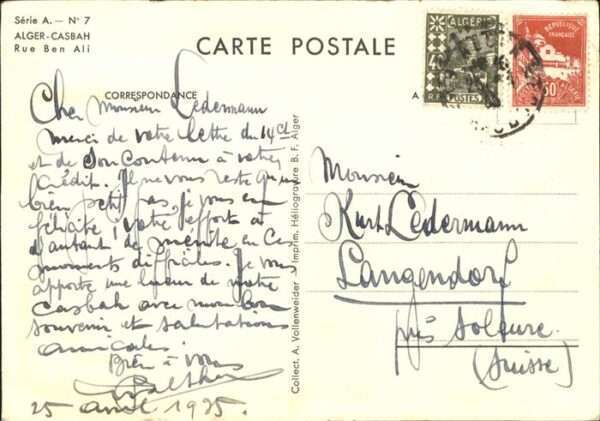 Série A. — N° 7
ALGER-CASBAH
Rue Ben Ali
CARTE POSTALE
CORRESPONDANCE
A
ALGÉRIE
POSTES
REPUBLIQUE
FRANÇAISE
50c
Cher Monsieur Ledermann
Merci de votre lettre du 14 ct
et de son contenu à votre
crédit. Il ne vous reste qu'un
bien petit pas, je vous en
félicite ! Votre effort a
d'autant de mérite en ces
moments difficiles. Je vous
apporte une lueur de notre
Casbah avec mon bon
souvenir et salutations
amicales.
Bien à vous
25 avril 1935.
Collect. A. Vollenweider — Imprim. Héliogravure B. F. Alger
Monsieur
Kurt Ledermann
Langendorf
près Soleure.
(Suisse)